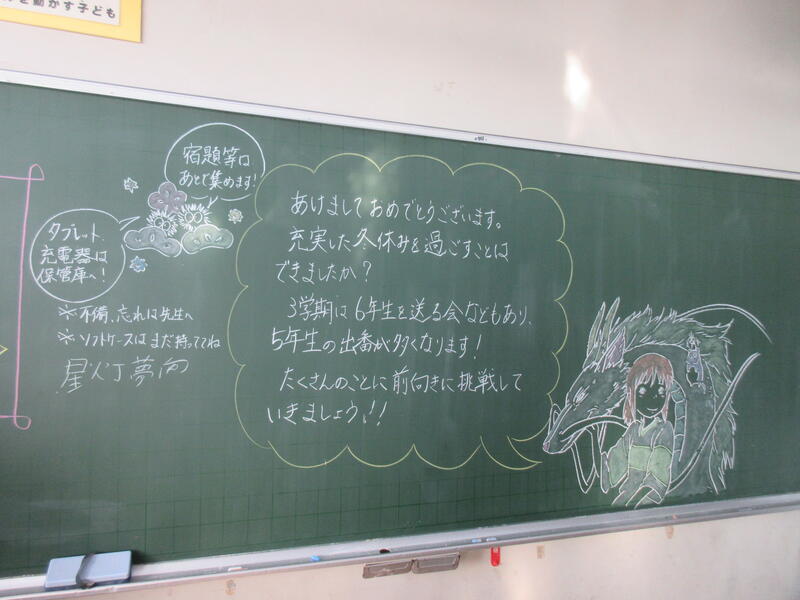 を動かす子ども
宿題等は
あとで集めます!
タブレット
充電器は
保管庫へ!
※不備、忘れは先生へ
※ソフトケースはまだ持っててね
あけましておめでとうございます。
充実した冬休みを過ごすことは
できましたか?
3学期は6年生を送る会などもあり、
5年生の出番が多くなります!
たくさんのことに前向きに挑戦して
いきましょう!!